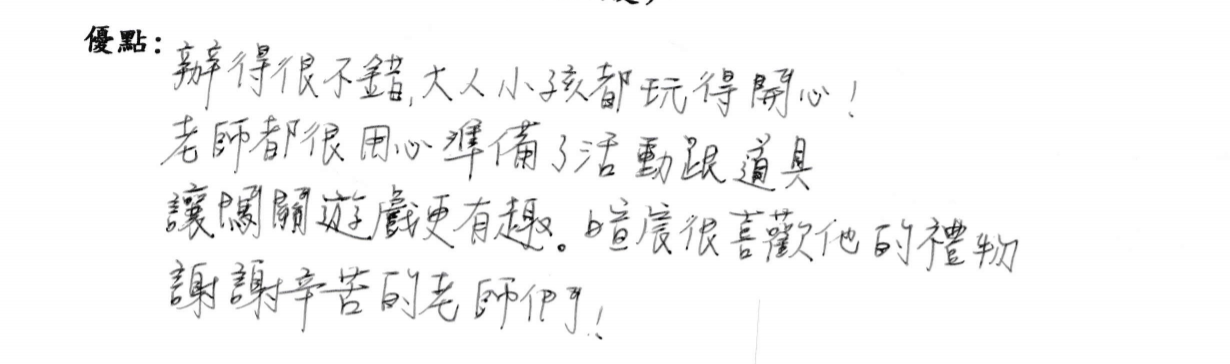 優點：
辦得很不錯,大人小孩都玩得開心!
老師都很用心準備了活動跟道具
讓闖關遊戲更有趣。暄宸很喜歡他的禮物
謝謝辛苦的老師們!